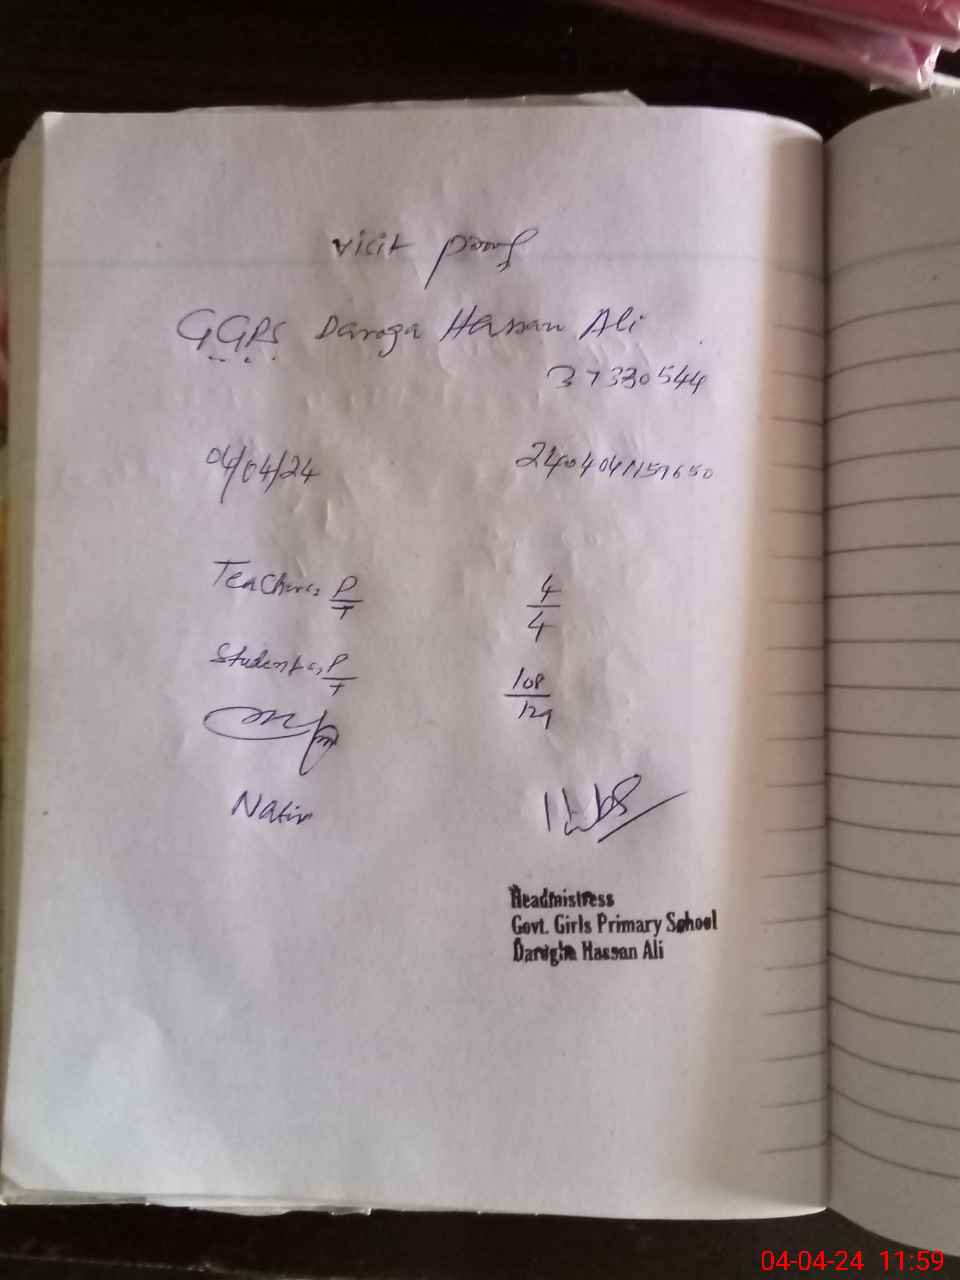 visit proof
GGPS Daroga Hassan Ali
37330544
04/04/24 2404041159650
Teachers P/T 4/4
Students P/T 108/129
Headmistress
Govt. Girls Primary School
Darogha Hassan Ali
04-04-24 11:59